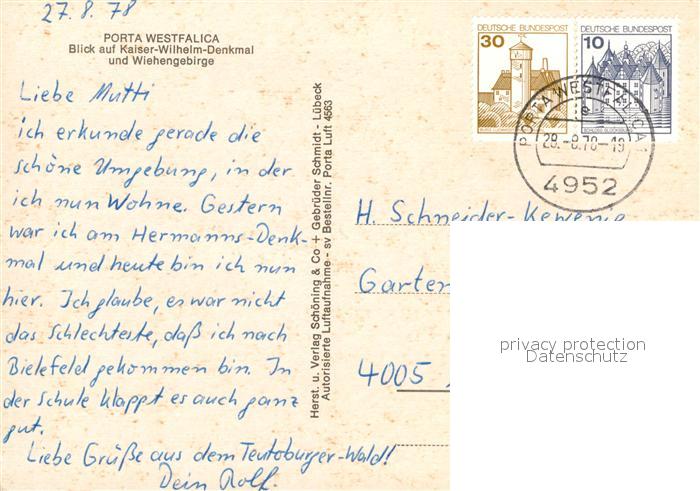 27.8.78
PORTA WESTFALICA
Blick auf Kaiser-Wilhelm-Denkmal
und Wiehengebirge
Liebe Mutti
ich erkunde gerade die
schöne Umgebung, in der
ich nun Wohne. Gestern
war ich am Hermanns-Denk-
mal und heute bin ich nun
hier. Ich glaube, es war nicht
das Schlechteste, daß ich nach
Bielefeld gekommen bin. In
der Schule klappt es auch ganz
gut.
Liebe Grüße aus dem Teutoburger-Wald!
Dein Rolf.
Herst. u. Verlag Schöning & Co + Gebrüder Schmidt - Lübeck
Autorisierte Luftaufnahme - sv Bestellnr. Porta Luft 4563
DEUTSCHE BUNDESPOST
30
DEUTSCHE BUNDESPOST
10
PORTA WESTFALICA 1
28.-8.78-19
4952
H. Schneider-Kewenig
Garten
4005
privacy protection
Datenschutz